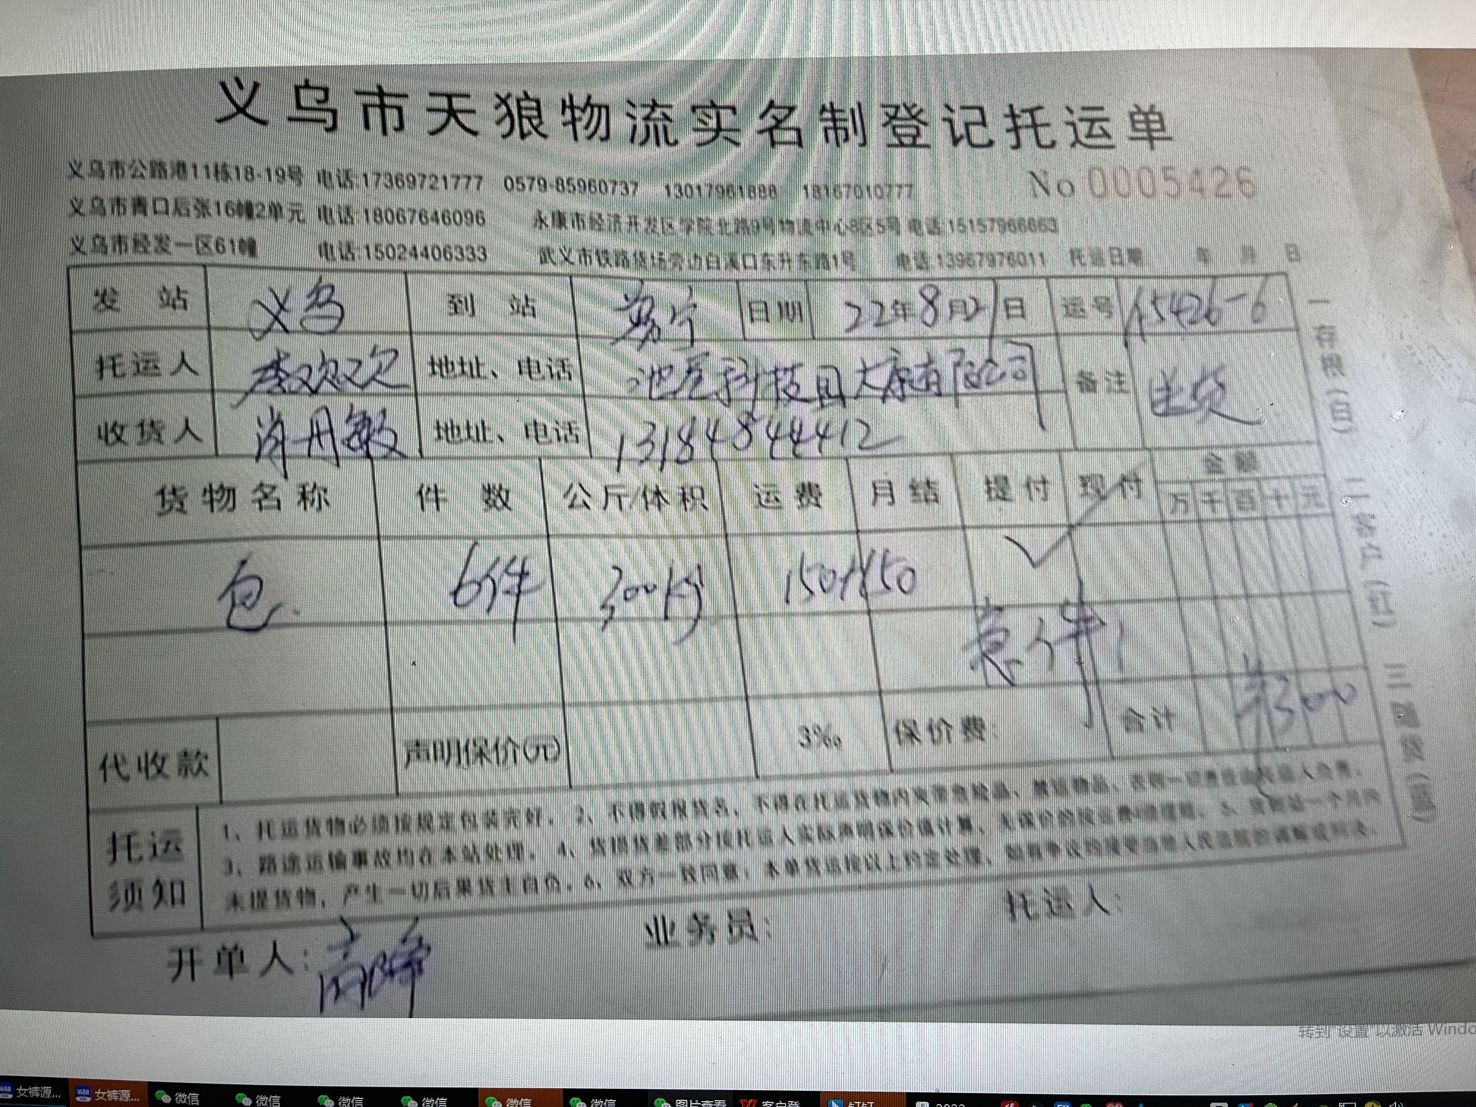 义乌市天狼物流实名制登记托运单
义乌市公路港11栋18-19号 电话:17369721777 0579-85960737 13017961888 18167010777 No 0005426
义乌市青口后张16幢2单元 电话:18067646096 永康市经济开发区学院北路9号物流中心8区5号 电话:15157966663
义乌市经发一区61幢 电话:15024406333 武义市铁路货场旁边白溪口东升东路1号 电话:13967976011 托运日期 年 月 日
发站 义乌 到站 日期 22年8月21日 运号 15426-6
托运人 李欢欢 地址、电话 备注 送货
收货人 地址、电话 13184844412
货物名称 件数 公斤/体积 运费 月结 提付 现付 金额
万 千 百 十 元
包 6件 300kg 150+150 ✓
急件!
代收款 声明保价(元) 3‰ 保价费: 合计 300
托运须知
1、托运货物必须按规定包装完好。2、不得假报货名、不得在托运货物内夹带危险品、禁运物品、否则一切责任由托运人负责。
3、路途运输事故均在本站处理。4、货损货差部分按托运人实际声明保价值计算、无保价的按运费 5、货到站一个月内
未提货物,产生一切后果货主自负。6、双方一致同意:本单货运按以上约定处理、如有争议均接受当地人民法院的调解或判决。
开单人: 业务员: 托运人:
一存根(白) 二客户(红) 三随货(蓝)
转到"设置"以激活 Windo
女裤源... 女裤源... 微信 微信 微信 微信 微信 微信 图片查看 客户登 钉钉